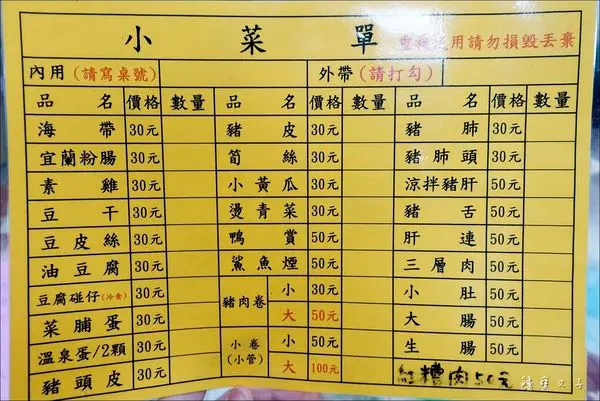 小菜單 重複使用請勿損毀丟棄
內用(請寫桌號) 外帶(請打勾)
品名 價格 數量 品名 價格 數量 品名 價格 數量
海帶 30元 豬皮 30元 豬肺 30元
宜蘭粉腸 30元 筍絲 30元 豬肺頭 30元
素雞 30元 小黃瓜 30元 涼拌豬肝 50元
豆干 30元 燙青菜 30元 豬舌 50元
豆皮絲 30元 鴨賞 50元 肝連 50元
油豆腐 30元 鯊魚煙 50元 三層肉 50元
豆腐碰仔(冷食) 30元 豬肉卷 小 30元 小肚 50元
菜脯蛋 30元 大 50元 大腸 50元
溫泉蛋/2顆 30元 小卷(小管) 小 50元 生腸 50元
豬頭皮 30元 大 100元 紅糟肉50元